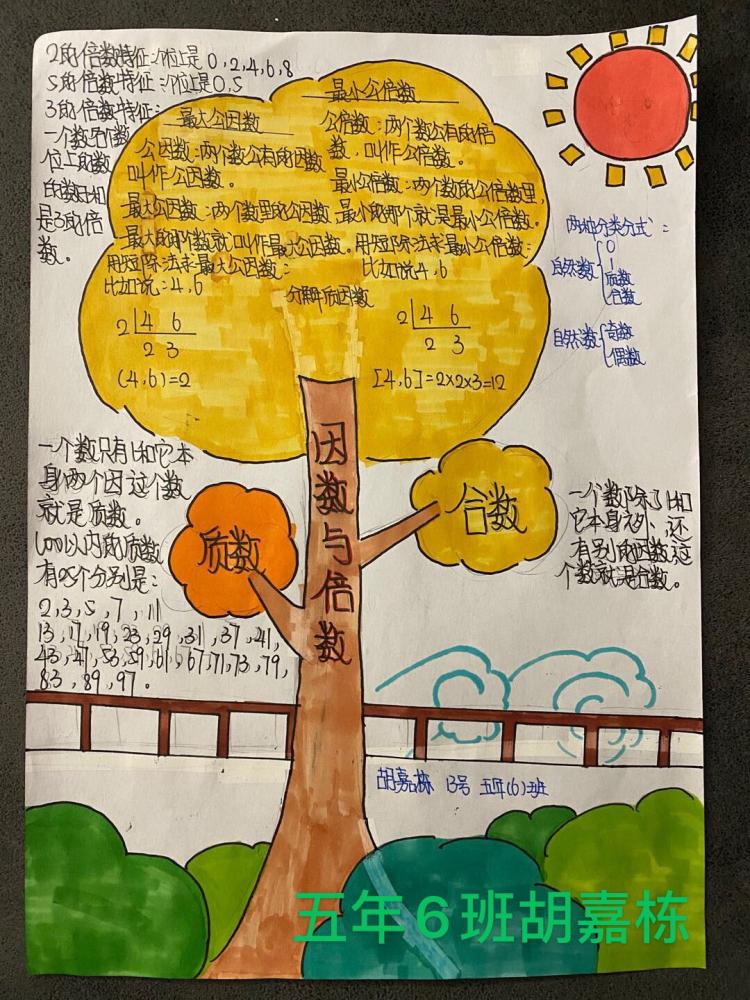 2的倍数特征:个位上是0,2,4,6,8
5的倍数特征:个位上是0,5
3的倍数特征:
一个数各个数
位上的数
的数的和
是3的倍
数。
最大公因数
公因数:两个数公有的因数
叫作公因数。
最大公因数:两个数里的公因数
最大的那个数就叫作最大公因数。
用短除法求最大公因数:
比如说:4,6
2 4 6
2 3
(4,6)=2
最小公倍数
公倍数:两个数公有的倍
数,叫作公倍数。
最小公倍数:两个数的公倍数里,
最小的那个就是最小公倍数。
用短除法求最小公倍数:
比如说4,6
分解质因数
2 4 6
2 3
[4,6]=2×2×3=12
两种分类分式:
自然数
0
1
质数
合数
自然数
奇数
偶数
因数与倍数
质数
合数
一个数只有1和它本
身两个因这个数
就是质数。
100以内的质数
有25个分别是:
2,3,5,7,11
13,17,19,23,29,31,37,41,
43,47,53,59,61,67,71,73,79,
83,89,97。
一个数除了1和
它本身以外,还
有别的因数,这
个数就是合数。
胡嘉栋 13号 五年(6)班
五年6班胡嘉栋